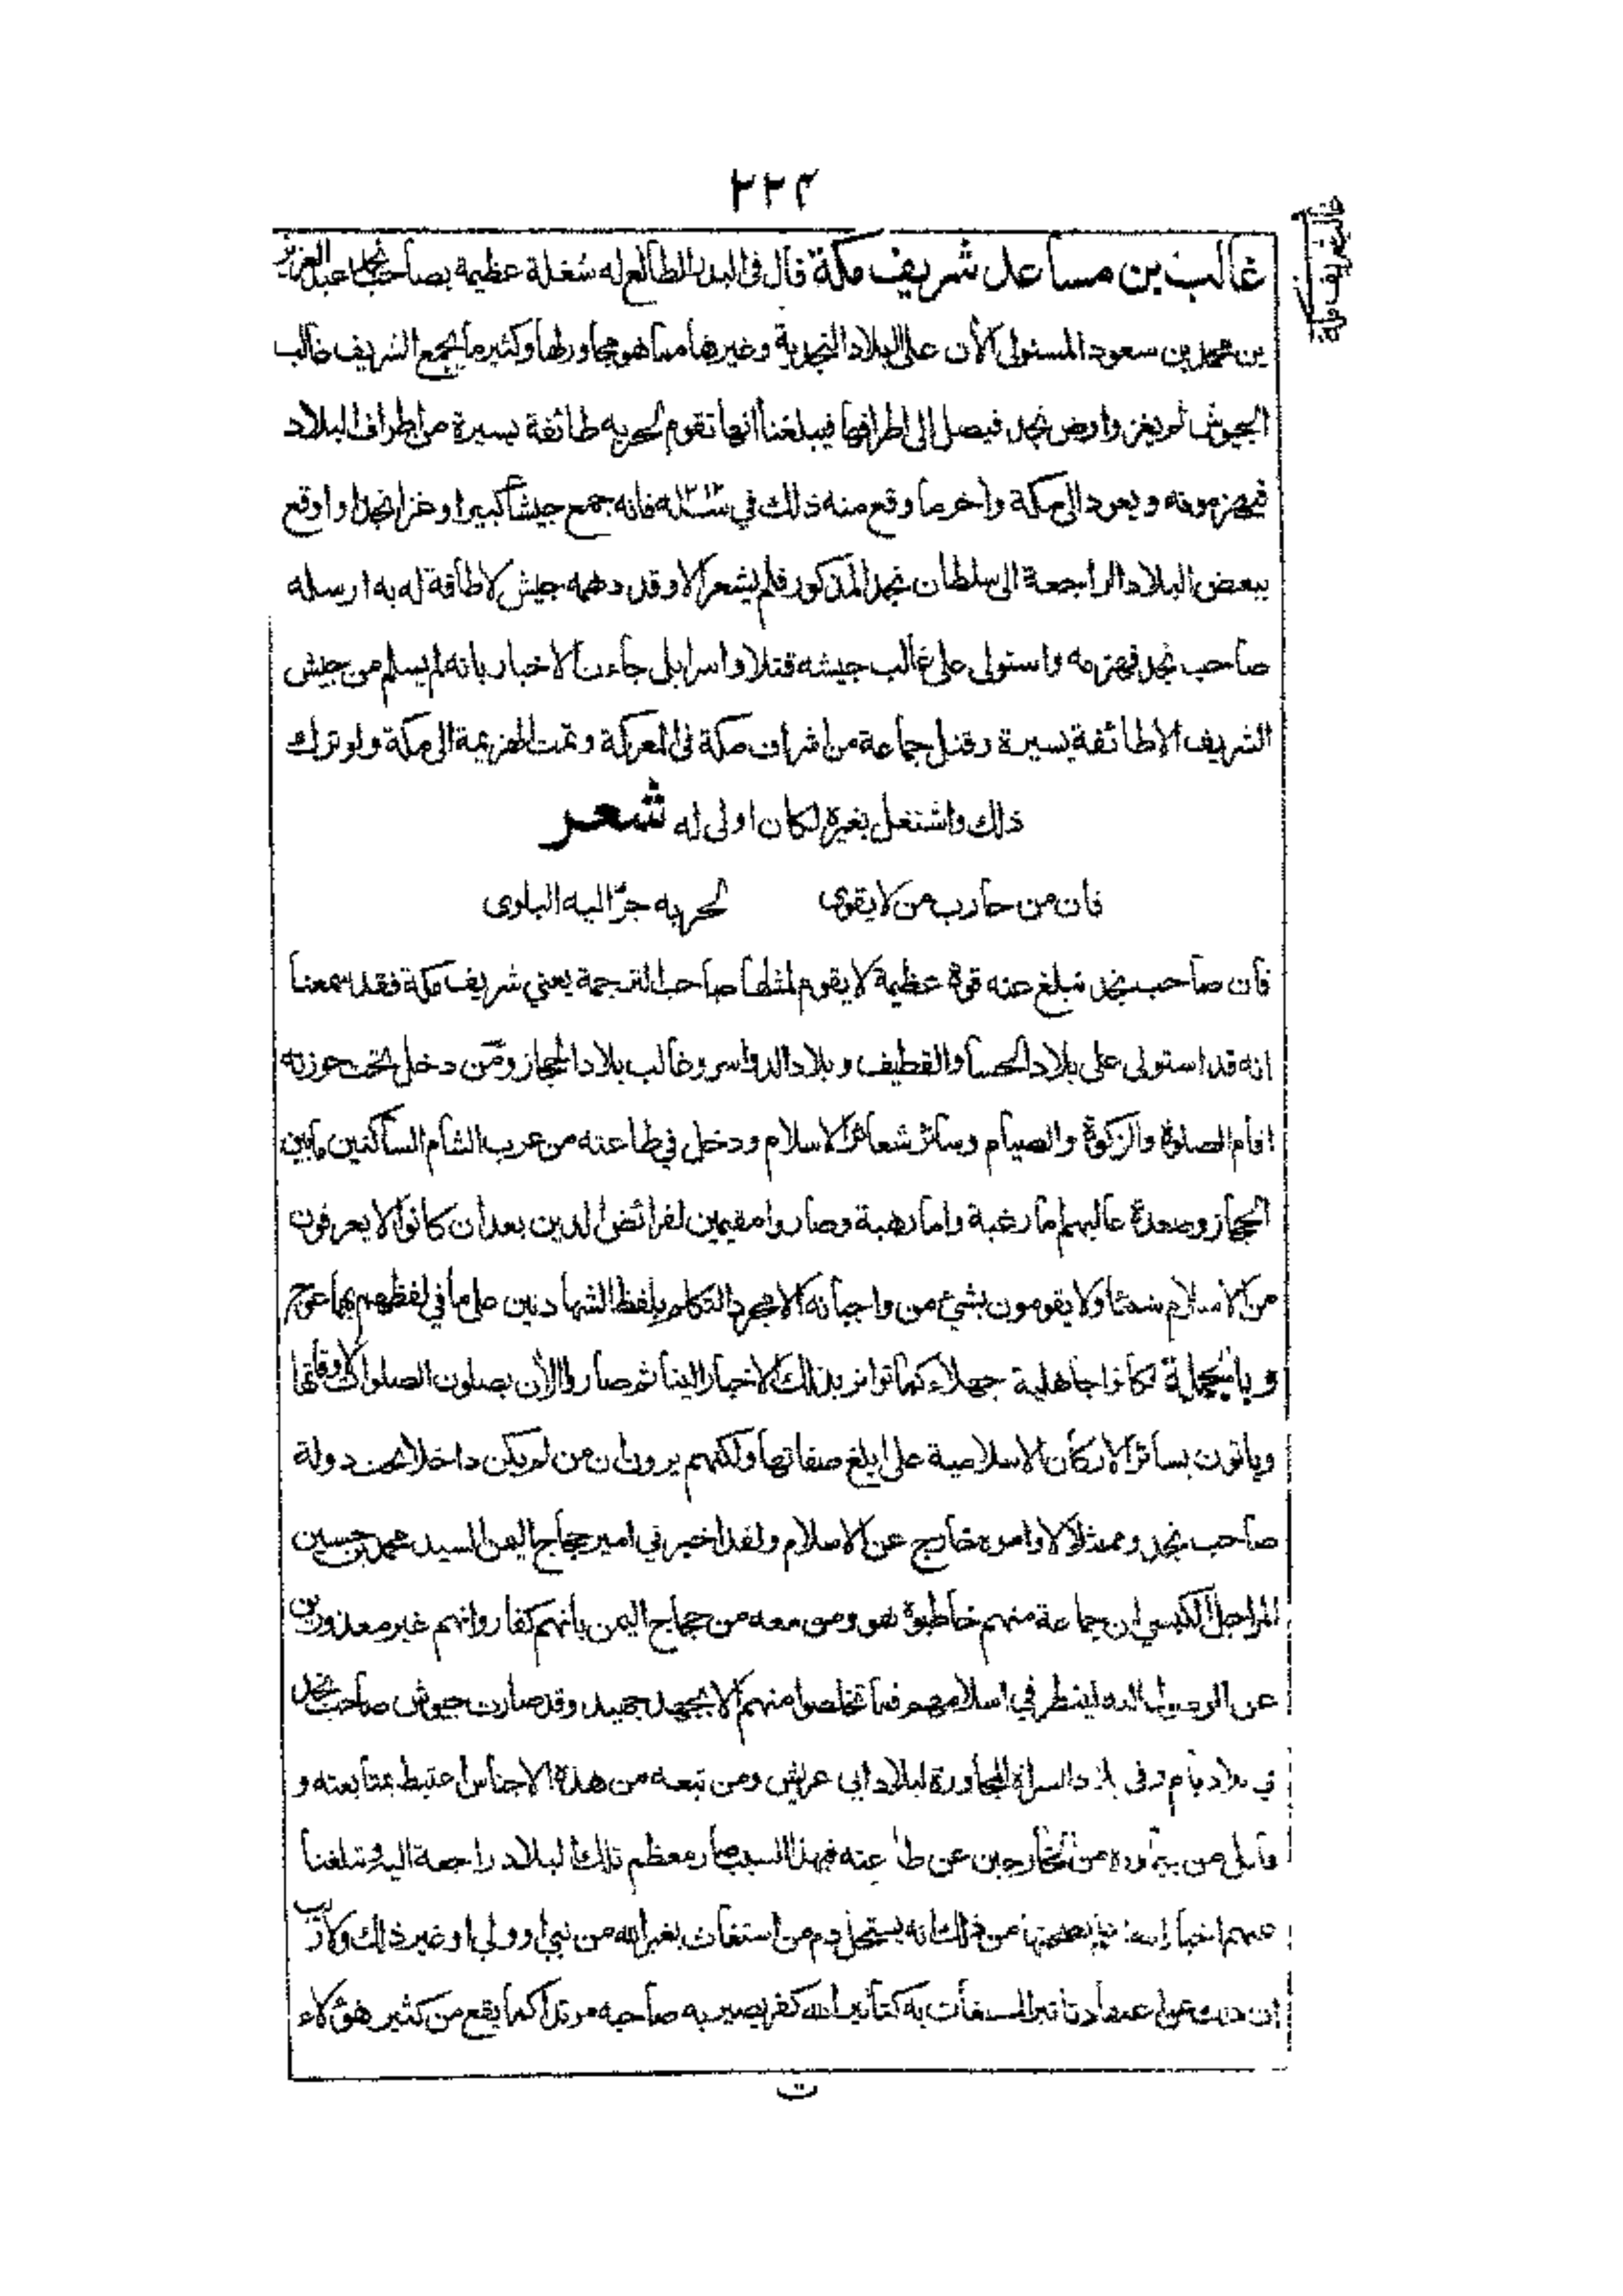 ٢٢٣
غالب بن مساعد شريف مكة قال فى البدر الطالع له شغلة عظيمة بصاحب نجد عبد العزيز
بن محمد بن سعود المستولى الأن على البلاد النجدية وغيرها مما هو مجاور لها وكثير ما يجمع الشريف غالب
الجيوش ثم يغزو ارض نجد فيصل الى اطرافها فيبلغنا انها تقوم لحربه طائفة يسيرة من اطراف البلاد
فيهزمونه ويعود الى مكة واخر ما وقع منه ذلك في سنة ١٢١٢ فانه جمع جيشا كبيرا وغزا نجدا واوقع
ببعض البلاد الراجعة الى سلطان نجد المذكور فلم يشعر الا وقد دهمه جيش لا طاقة له به ارسله
صاحب نجد فهزمه واستولى على غالب جيشه قتلا واسرا بل جاءت الاخبار بانه لم يسلم من جيش
الشريف الا طائفة يسيرة وقتل جماعة من اشراف مكة فى المعركة وتمت الهزيمة الى مكة ولو ترك
ذلك واشتغل بغيره لكان اولى له شعر
فان من حارب من لا يقوى لحربه جرّ اليه البلوى
فان صاحب نجد تبلغ عنه قوة عظيمة لا يقوم لمثلها صاحب الترجمة يعني شريف مكة فقد سمعنا
انه قد استولى على بلاد الحسا والقطيف وبلاد الدواسر وغالب بلاد الحجاز ومن دخل تحت حوزته
اقام الصلوة والزكوة والصيام وسائر شعائر الاسلام ودخل في طاعته من عرب الشام الساكنين مابين
الحجاز وصعدة غالبهم اما رغبة واما رهبة وصاروا مقيمين لفرائض الدين بعد ان كانوا لا يعرفون
من الاسلام شيئا ولا يقومون بشئ من واجباته الا مجرد التكلم بلفظ الشهادتين على ما في لفظهم بهما عوج
وبالجملة فكانوا جاهلية جهلاء كما تواتر بذلك الاخبار الينا ثم صاروا الأن يصلون الصلوات لاوقاتها
وياتون بسائر الاركان الاسلامية على ابلغ صفاتها ولكنهم يرون ان من لم يكن داخلا تحت دولة
صاحب نجد وممتثلا لاوامره خارج عن الاسلام ولقد اخبرني امير حجاج اليمن السيد محمد بن حسين
المراجل الكبسي ان جماعة منهم خاطبوه هو ومن معه من حجاج اليمن بانهم كفار وانهم غير معذورين
عن الوصول اليه لينظر في اسلامهم فما تخلصوا منهم الا بجهد جهيد وقد صارت جيوش صاحب نجد
في بلاد يام وفى بلاد السراة المجاورة لبلاد ابي عريش ومن تبعه من هذه الاجناس اغتبط بمتابعته و
قاتل من يجاوره من الخارجين عن طاعته فبهذا السبب صار معظم تلك البلاد راجعة اليه وتبلغنا
عنهم اخبار الله اعلم بصحتها من ذلك انه يستحل دم من استغاث بغير الله من نبي او ولي او غير ذلك ولا ريب
ان ذلك عن اعتقاد تاثير المستغاث به كتأثير الله كفر يصير به صاحبه مرتدا كما يقع من كثير هؤلاء
ت